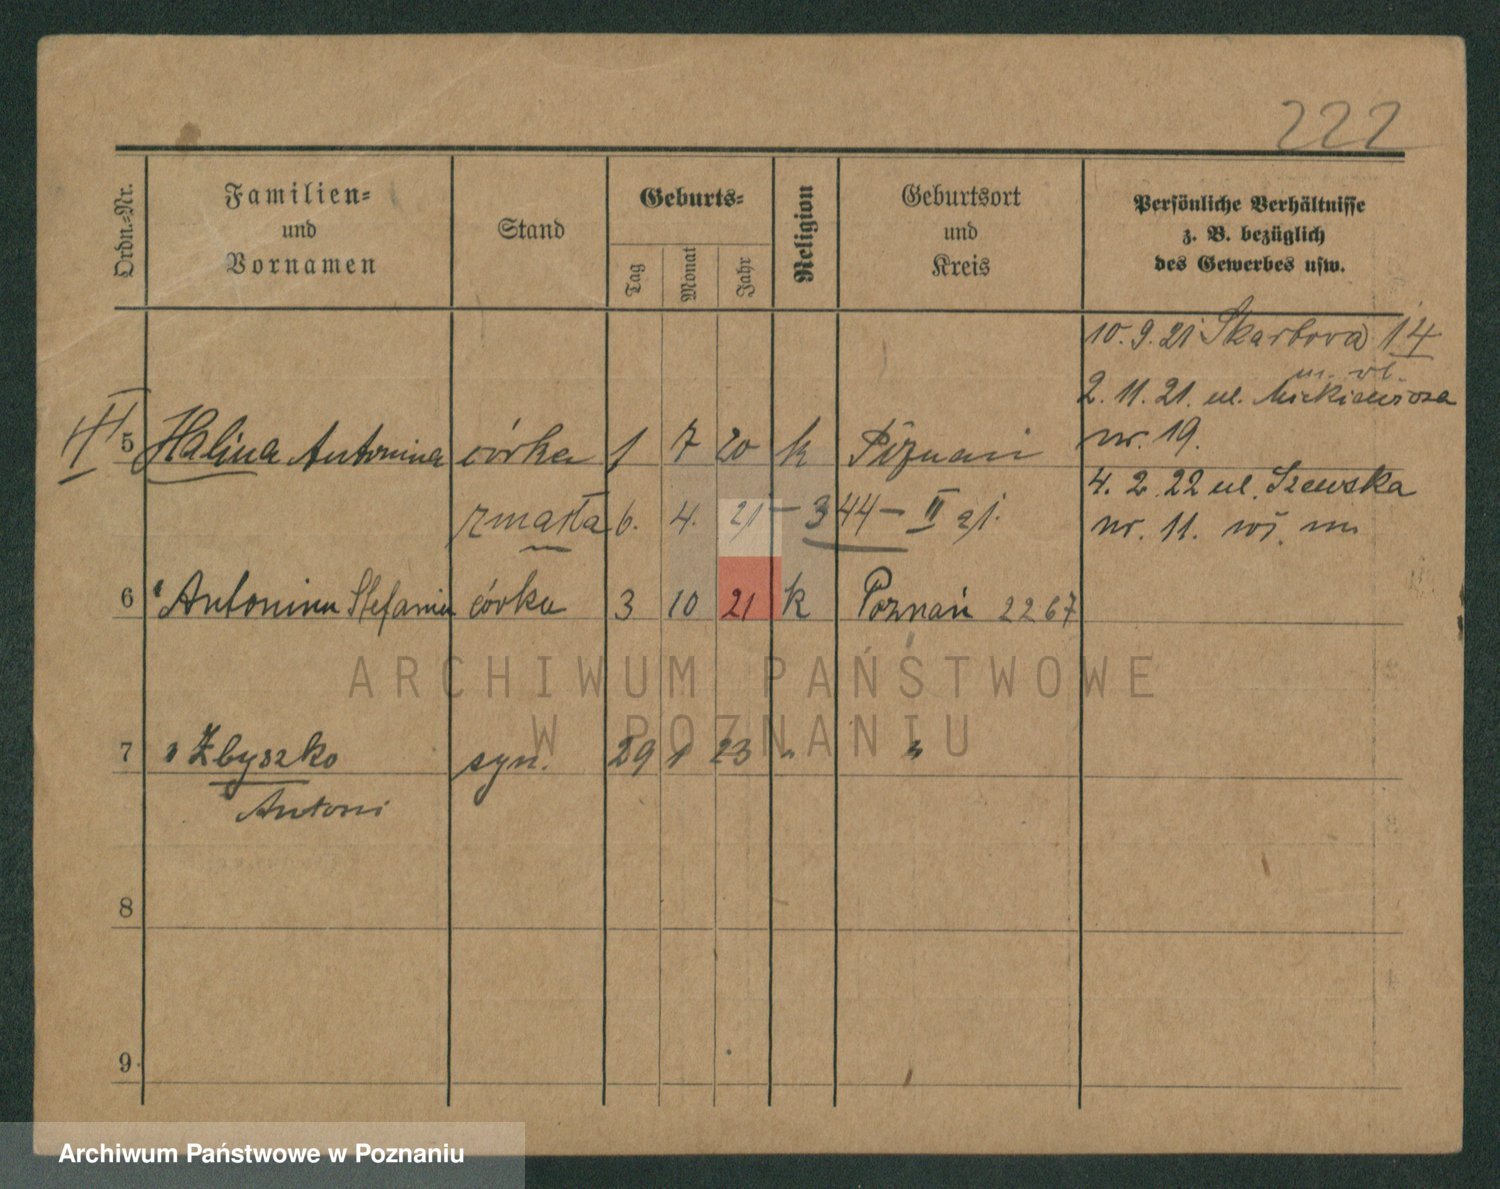 222
Ordn.-Nr.
Familien-
und
Vornamen
Stand
Geburts-
Tag
Monat
Jahr
Religion
Geburtsort
und
Kreis
Persönliche Verhältnisse
z. B. bezüglich
des Gewerbes usw.
10. 9. 21 Skarbova 14
m. vl.
2. 11. 21. ul. Mickiewicza
nr. 19.
5 Halina Antonina córka 1 7 20 k Poznań
4. 2. 22 ul. Szewska
zmarła 6. 4. 21 – 344 – II
nr. 11.
6 Antonina Stefania córka 3 10 21 k Poznań 2267
ARCHIWUM PAŃSTWOWE
W POZNANIU
7 " Zbyszko syn. 29 1 23 " "
Antoni
8
9
Archiwum Państwowe w Poznaniu